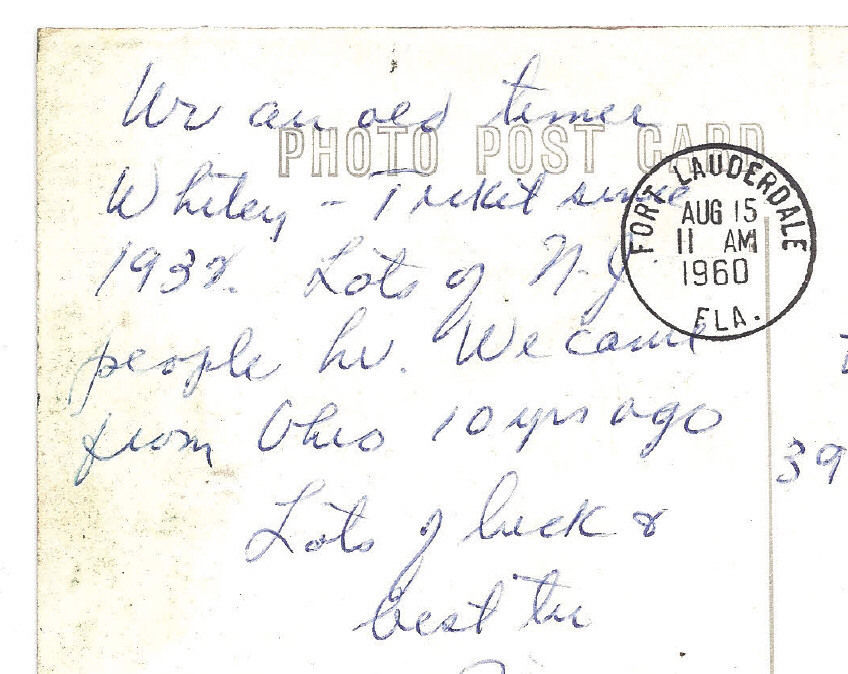 We an old timer
PHOTO POST CARD
Whitey - Ticket since
1938. Lots of N.J
people hr. We came
from Ohio 10 yrs ago
Lots of luck &
best
FORT LAUDERDALE
AUG 15
11 AM
1960
FLA.
39